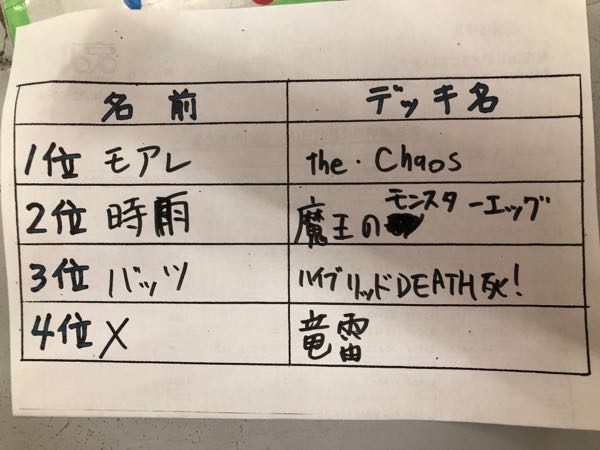 名前 デッキ名
1位 モアレ the・Chaos
2位 時雨 魔王のモンスターエッグ
3位 バッツ ハイブリッドDEATH死!
4位 X 竜雷